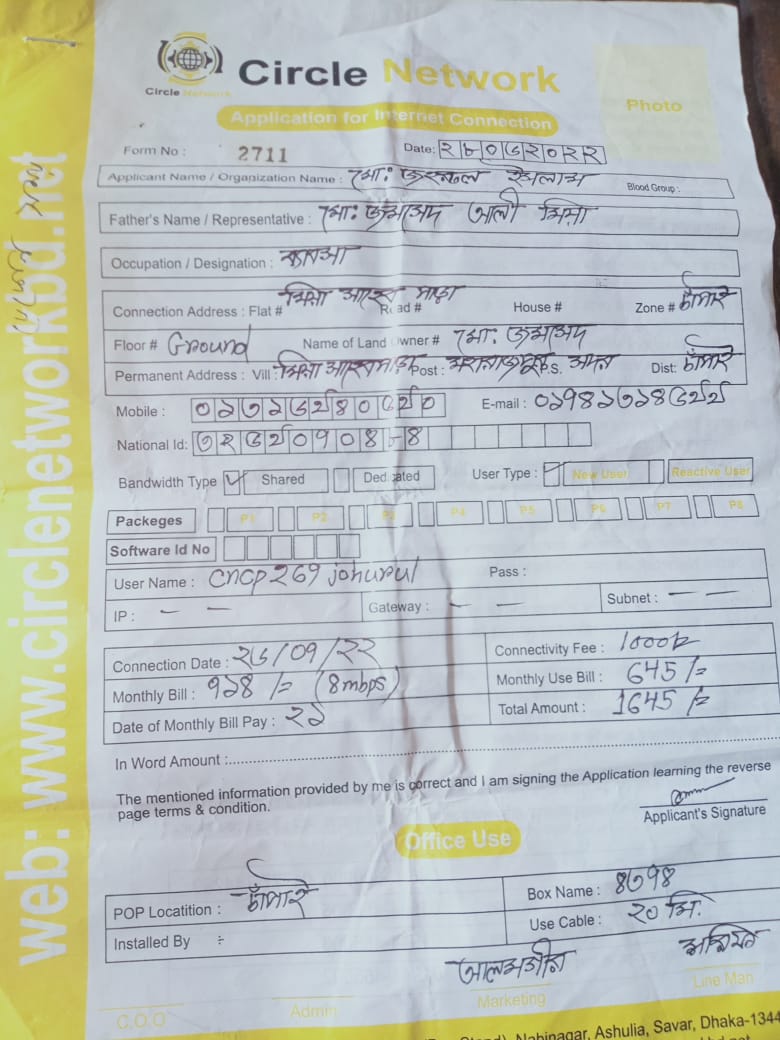 web: www.circlenetworkbd.net
Circle Network
Circle Network
Application for Internet Connection
Photo
Form No : 2711
Date: ২৮০৫২০২২
Applicant Name / Organization Name : মো: জহরুল ইসলাম Blood Group :
Father's Name / Representative : মো: জমাদ্দ আলী মিয়া
Occupation / Designation : ব্যবসা
Connection Address : Flat # মিয়া Road # House # Zone # চাঁপাই
Floor # Ground Name of Land Owner # মো:
Permanent Address : Vill : মিয়া Post : P.S. সদর Dist: চাঁপাই
Mobile : E-mail :
National Id:
Bandwidth Type Shared Dedicated User Type : New User Reactive User
Packeges P1 P2 P3 P4 P5 P6 P7 P8
Software Id No
User Name : cncp269 johurul Pass :
IP : — — Gateway : — — Subnet : — —
Connection Date : Connectivity Fee : 1000
Monthly Bill : (8mbps) Monthly Use Bill : 645 /=
Date of Monthly Bill Pay : ২১ Total Amount : 1645 /=
In Word Amount :
The mentioned information provided by me is correct and I am signing the Application learning the reverse
page terms & condition.
Applicant's Signature
Office Use
POP Locatition : চাঁপাই Box Name :
Installed By ÷ Use Cable : ২০ মি.
আলমগীর
C.O.O Admin Marketing Line Man
Nabinagar, Ashulia, Savar, Dhaka-1344